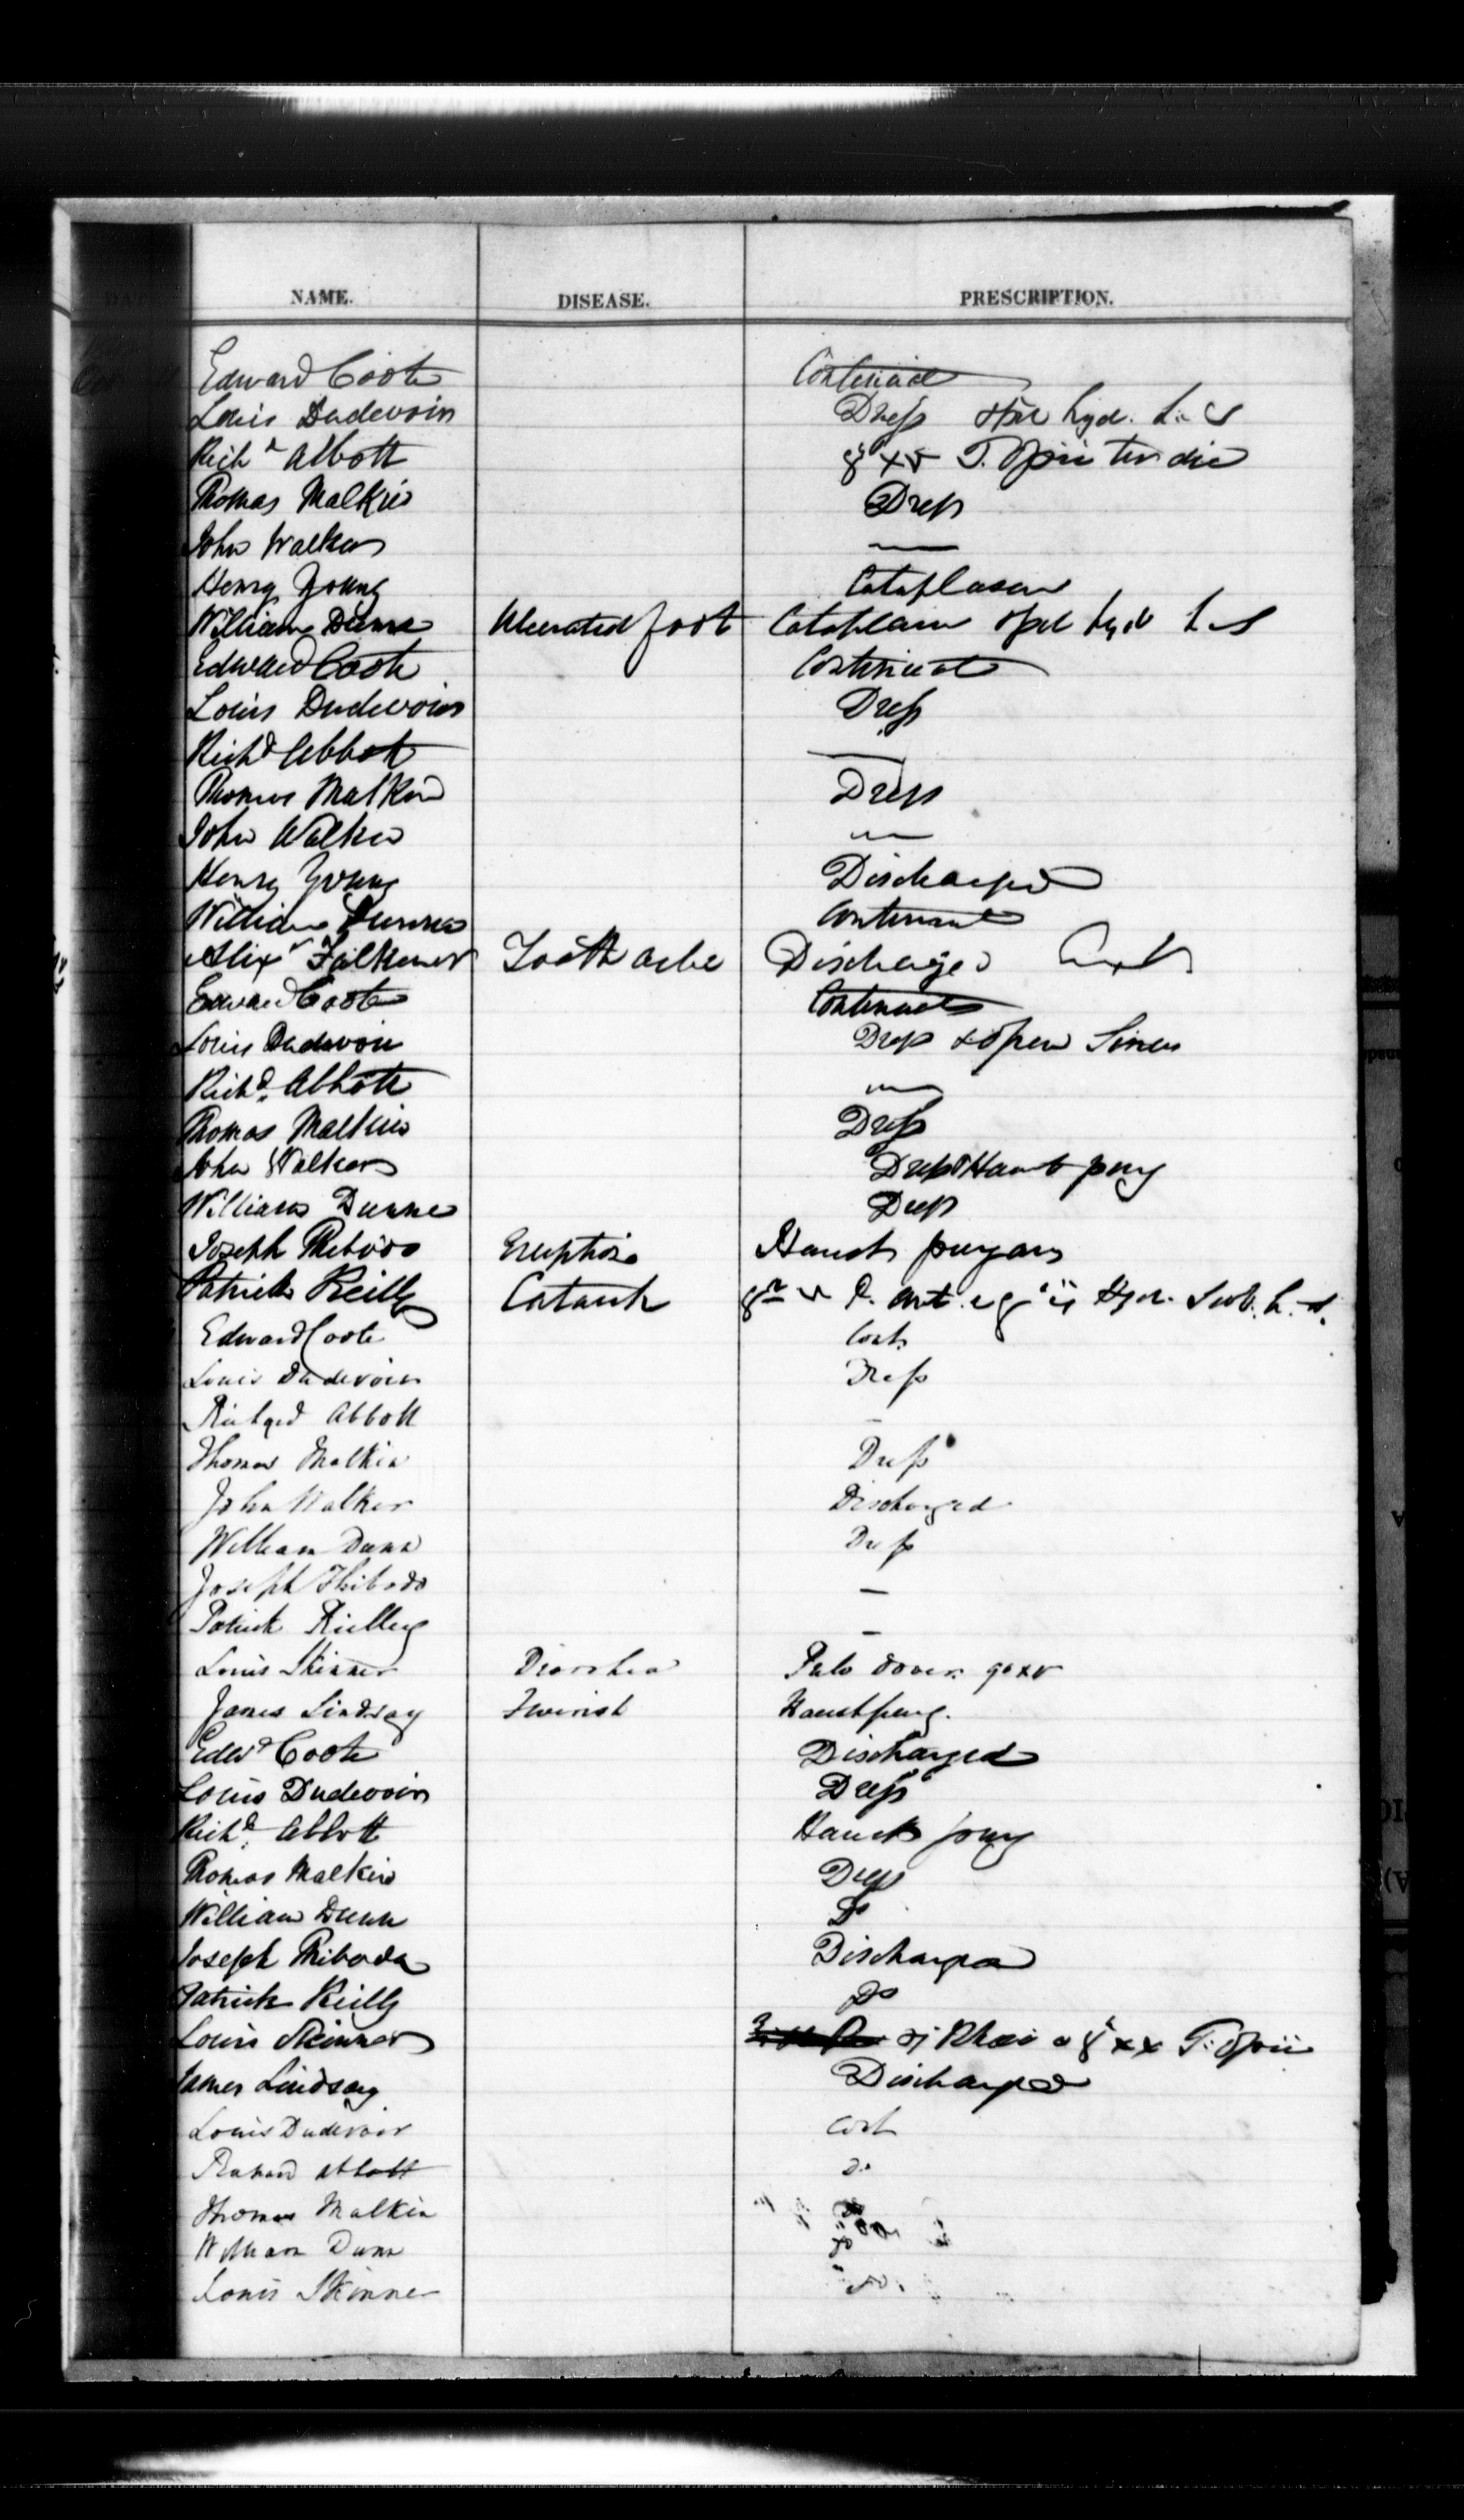 NAME. DISEASE. PRESCRIPTION.
Edward Coote Continued
Louis Dudevoin Dress hyd.
Richd Abbott xv T. Opii ter die
Thomas Malkin Dress
John Walker —
Henry Young Cataplasm
William Dunne Ulcerated foot Cataplasm
Edward Coote Continued
Louis Dudevoin Dress
Richd Abbott —
Thomas Malkin Dress
John Walker —
Henry Young Discharged
William Dunne Continued
Alexr Falkener Tooth ache Discharged
Edward Coote Continued
Louis Dudevoin Dress & Open Sinus
Richd Abbott —
Thomas Malkin Dress
John Walker Dress & Haust purg
William Dunne Dress
Joseph Thibodo Eruption Haust purgans
Patrick Reilly Catarrh gr v P. Ant. Hyd. Sub. h. s.
Edward Coote Cont
Louis Dudevoin Dress
Richard Abbott —
Thomas Malkin Dress
John Walker Discharged
William Dunn Dress
Joseph Thibodo —
Patrick Rielley —
Louis Skinner Diarrhea Pulv Dover. gr xv
James Lindsay Haust purg.
Edwd Coote Discharged
Louis Dudevoin Dress
Richd Abbott Haust purg
Thomas Malkin Dress
William Dunn Do
Joseph Thiboda Discharged
Patrick Reilly Do
Louis Skinner Rhei xx T. Opii
James Lindsay Discharged
Louis Dudevoir Cont
Richard Abbott Do
Thomas Malkin
William Dunn Do
Louis Skinner Do